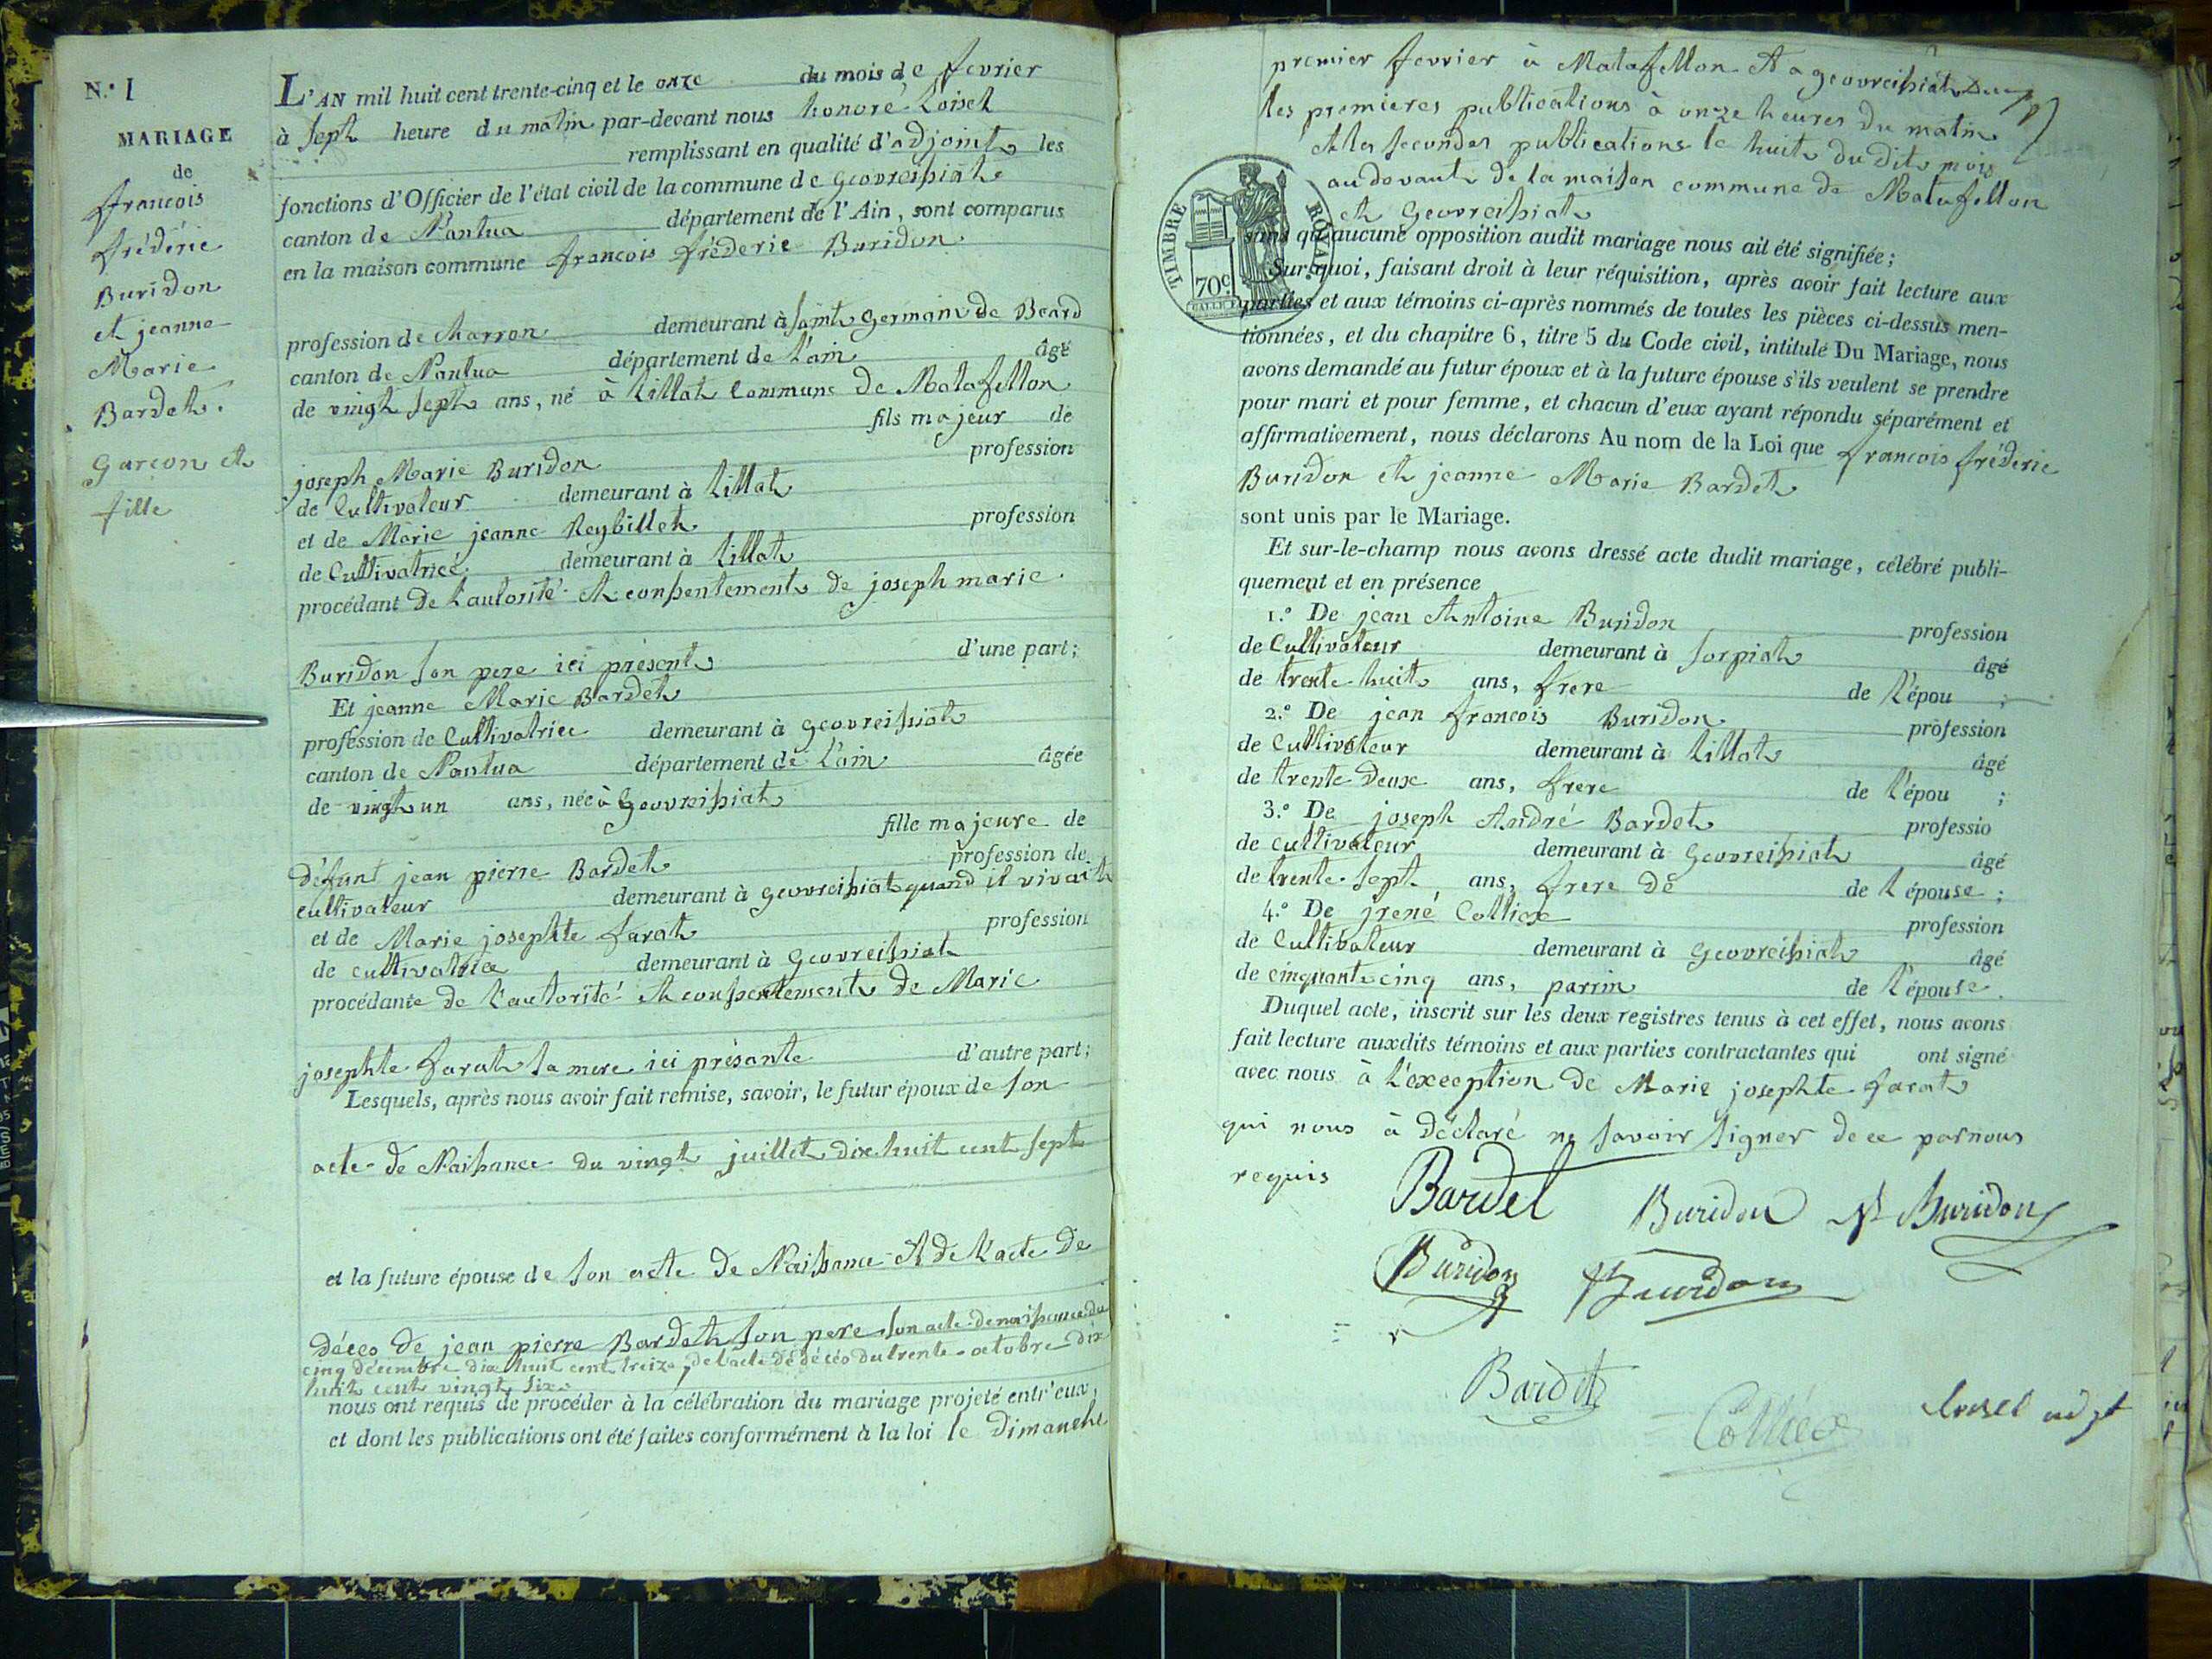 N.° 1
MARIAGE
de
francois
fréderic
Buridon
et jeanne
Marie
Bardet.
Garcon et
fille
L'AN mil huit cent trente-cinq et le onze du mois de fevrier
à sept heure du matin par-devant nous honoré Loisel
remplissant en qualité d'adjoint les
fonctions d'Officier de l'état civil de la commune de Geovreissiat
canton de Nantua département de l'Ain, sont comparus
en la maison commune francois fréderic Buridon
profession de charron demeurant à saint Germain de Beard
canton de Nantua département de l'ain âgé
de vingt sept ans, né à Lillat commune de Matafellon
fils majeur de
joseph Marie Buridon profession
de Cultivateur demeurant à Lillat
et de Marie jeanne Reybillet profession
de Cultivatrice demeurant à Lillat
procédant de l'autorité et consentement de joseph marie
Buridon son pere ici présent d'une part;
Et jeanne Marie Bardet
profession de Cultivatrice demeurant à Geovreissiat
canton de Nantua département de l'ain âgée
de vingt un ans, née à Geovreissiat
fille majeure de
défunt jean pierre Bardet profession de
cultivateur demeurant à Geovreissiat quand il vivait
et de Marie josephte farat profession
de cultivatrice demeurant à Geovreissiat
procédante de l'autorité et consentement de Marie
josephte farat sa mere ici présante d'autre part;
Lesquels, après nous avoir fait remise, savoir, le futur époux de son
acte de Naissance du vingt juillet dix huit cent sept
et la future épouse de son acte de Naissance Et de l'acte de
décès de jean pierre Bardet son pere son acte de naissance du
cinq décembre dix huit cent treize, de l'acte de décès du trente octobre dix
huit cent vingt six
nous ont requis de procéder à la célébration du mariage projeté entr'eux,
et dont les publications ont été faites conformément à la loi le Dimanche
premier fevrier à Matafellon Et a geovreissiat
les premieres publications à onze heures du matin
et les secondes publications le huit du dit mois
au devant de la maison commune de Matafellon
et Geovreissiat
TIMBRE ROYAL
70c
sans qu'aucune opposition audit mariage nous ait été signifiée;
Sur quoi, faisant droit à leur réquisition, après avoir fait lecture aux
parties et aux témoins ci-après nommés de toutes les pièces ci-dessus men-
tionnées, et du chapitre 6, titre 5 du Code civil, intitulé Du Mariage, nous
avons demandé au futur époux et à la future épouse s'ils veulent se prendre
pour mari et pour femme, et chacun d'eux ayant répondu séparément et
affirmativement, nous déclarons Au nom de la Loi que francois fréderic
Buridon et jeanne Marie Bardet
sont unis par le Mariage.
Et sur-le-champ nous avons dressé acte dudit mariage, célébré publi-
quement et en présence
1.° De jean Antoine Buridon profession
de Cultivateur demeurant à sorpiat âgé
de trente huit ans, frere de l'épou ;
2.° De jean francois Buridon profession
de Cultivateur demeurant à Lillat âgé
de trente deux ans, frere de l'épou ;
3.° De joseph André Bardet professio
de cultivateur demeurant à Geovreissiat âgé
de trente-sept ans, frere de de l'épouse ;
4.° De jrené Colliex profession
de Cultivateur demeurant à Geovreissiat âgé
de cinquante cinq ans, parrin de l'épouse
Duquel acte, inscrit sur les deux registres tenus à cet effet, nous avons
fait lecture auxdits témoins et aux parties contractantes qui ont signé
avec nous à l'exception de Marie josephte farat
qui nous à déclaré ne savoir signer de ce par nous
requis
Bardel Buridon Buridon
Buridon Buridon
Bardet
Loisel adjt